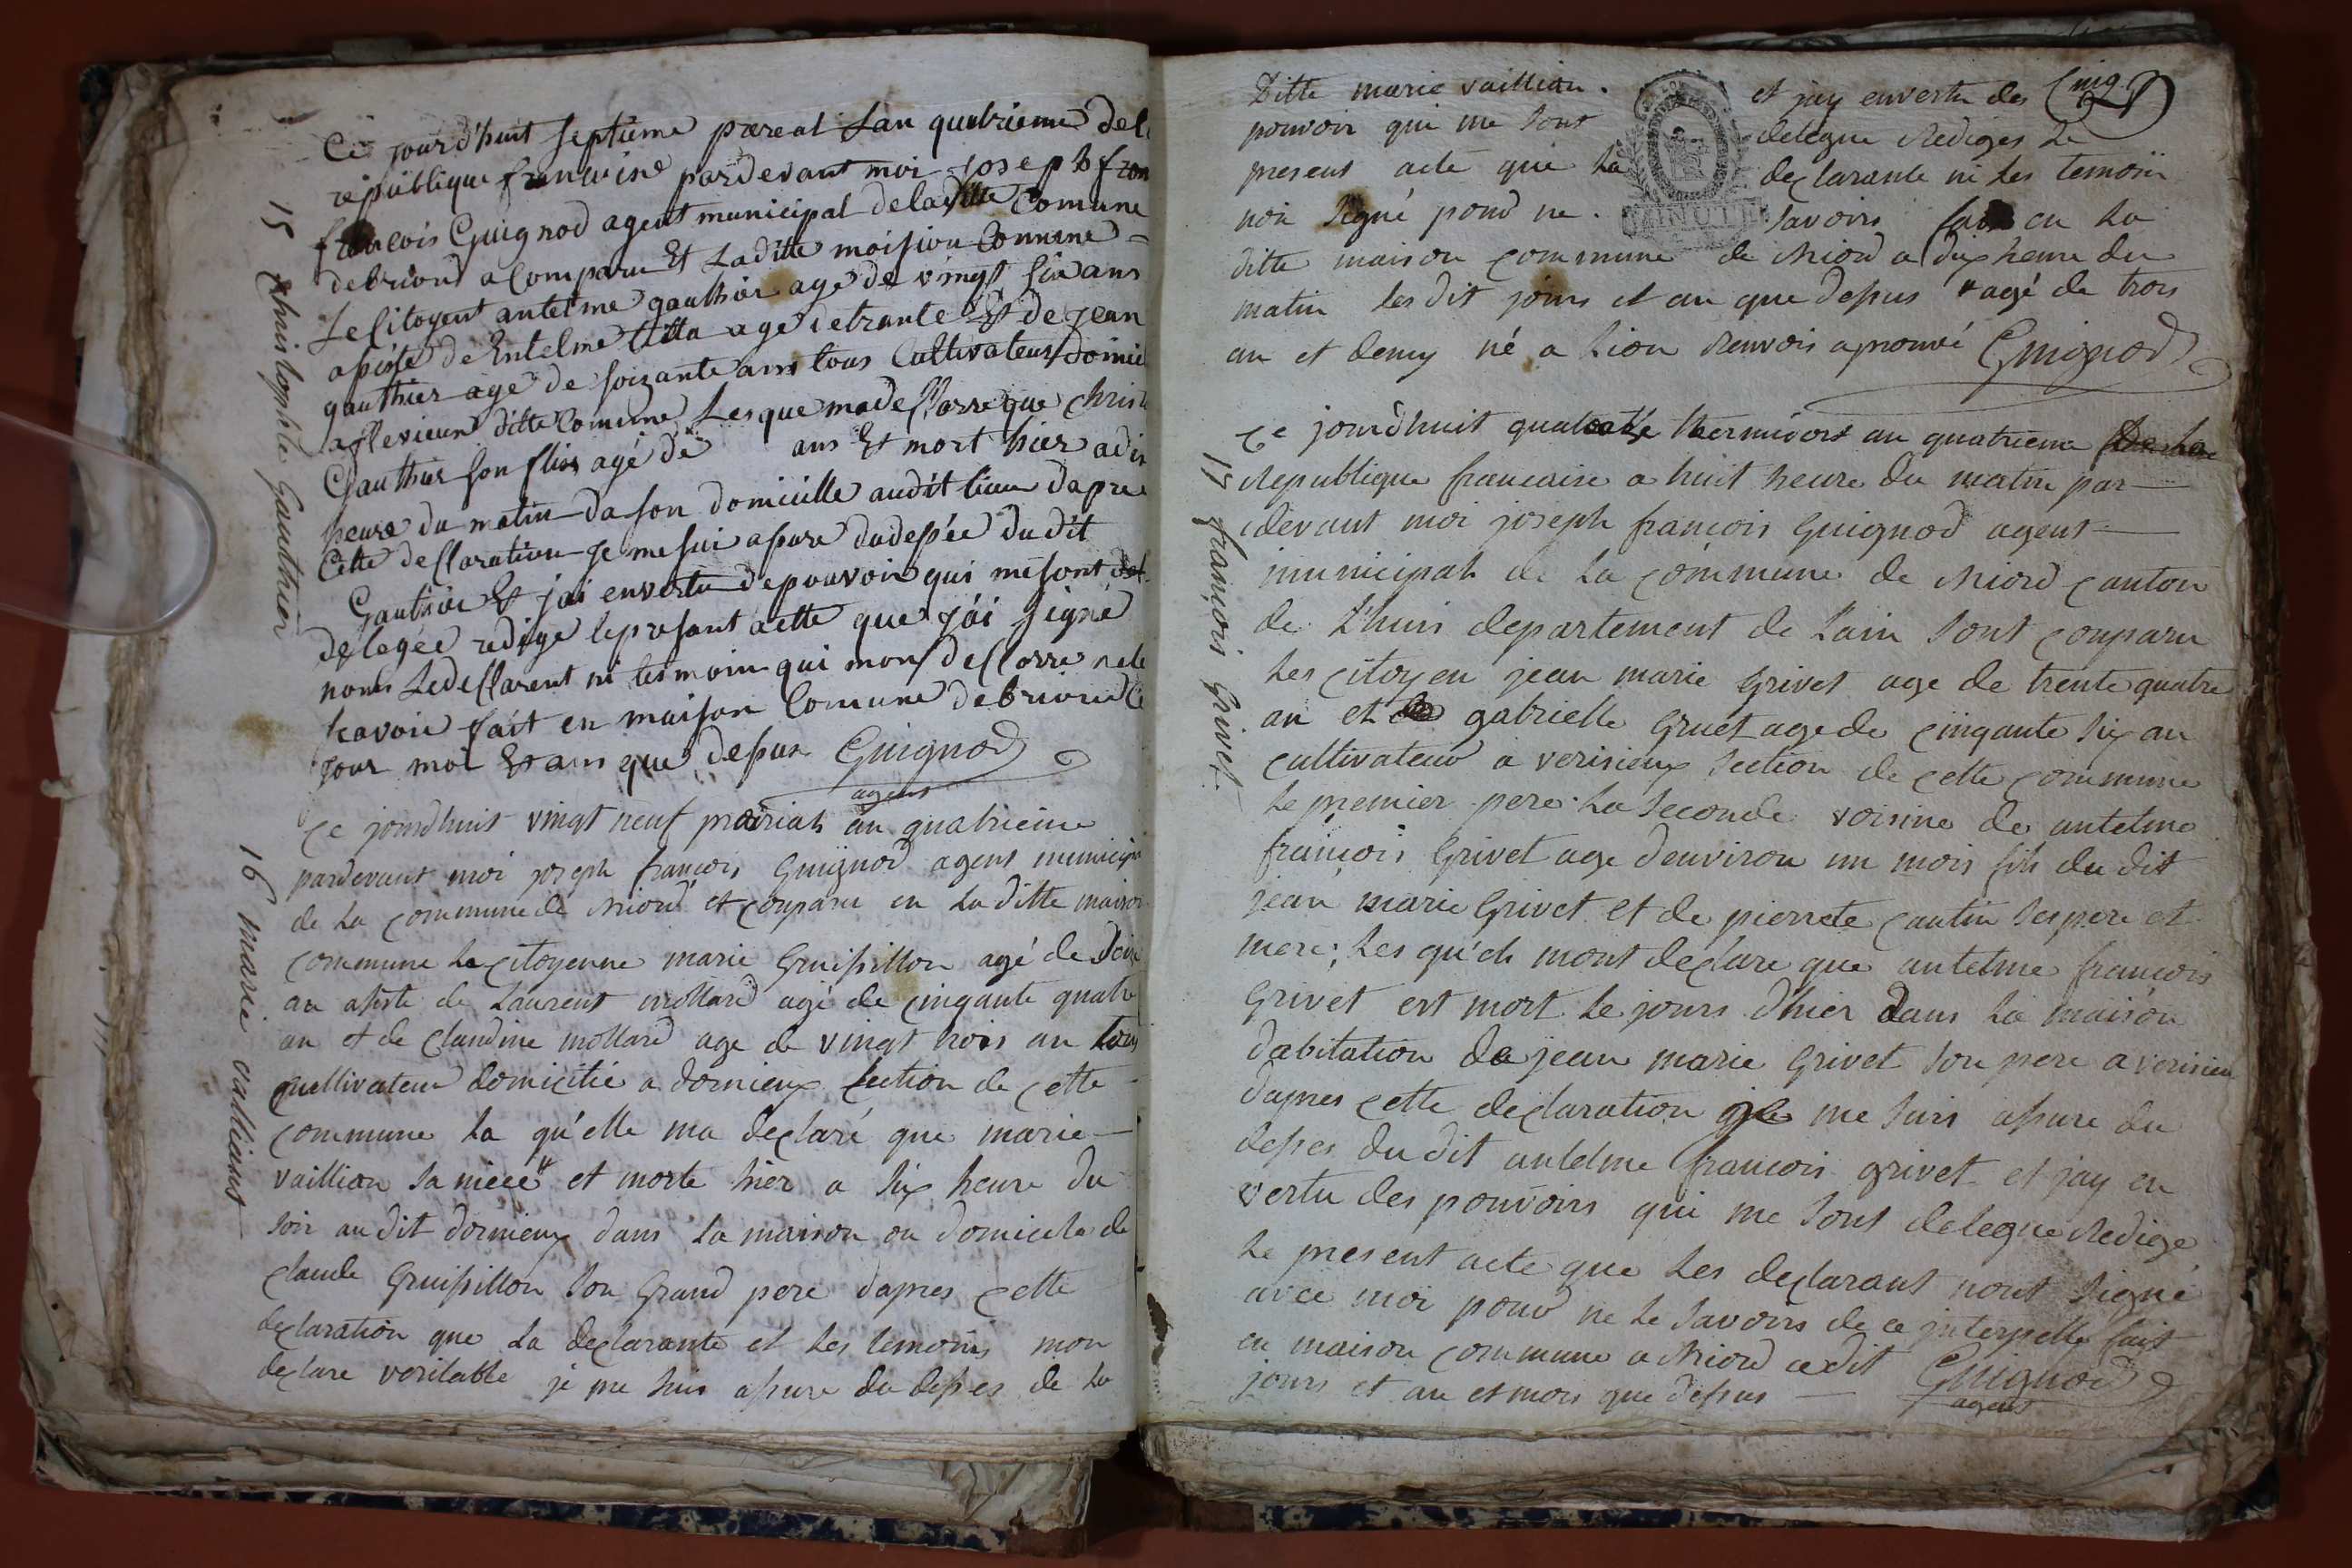 15 Christophle Gauthier
Ce jourd'huit septieme prereal Lan quatrieme dela
republique francoise pardevant moi joseph fran
francois Guignod agent municipal de laditte Comune
debriord a Comparu Et Ladite moision Comune
Le Citoyent antelme gauthier age de vingt six ans
apisté de Entelme Citta age detrante Et de jean
gauthier age de soixante ans tous Cultivateurs domici
a flevieux ditte Comune Lesque ma decllarre que christ
Gauthier son flis agé de ans Et mort hier a dix
heure du matin da son domicille audit lieu dapre
Cette decllaration Je me sui asure dudesée du dit
Gauthier Et jai envertu de pouvoir qui me sont del
delegée redige le presant actte que j'ai signé
nons Ledecllarent ni tesmoin qui mons decllarre nele
savoir fait en maison Comune de briord Ce
jour moi Et ans que desus Guignod
agent
16 marie valliant
Ce jourdhuit vingt neuf prairial an quatrieme
pardevant moi joseph francois Guignod agent municipa
de La commune de Briord et comparu en La ditte maison
commune La citoyenne marie Gruissillon agé de Seize
an asisté de Laurent mollard agé de cinqante quatre
an et de claudine mollard age de vingt trois an tous
cultivateur domicilié a dornieux section de cette
commune La qu'elle ma declaré que marie
vaillion sa niece et morte hier a six heure du
soir au dit dornieux dans La maison ou domicile de
claude Gruissillon son Grand pere dapres cette
declaration que La declarante et Les temoins mon
declare veritable je me suis assure du desses de La
Ditte marie vaillian. et jay envertu des Cinq
pouvoir qui me sont delegue Rediges Le
present acte que La declarante ni Les temoin
non signé pour ne. Savoirs fait en La
ditte maison commune de Briord a dix heure du
matin lesdit jours et an que desus agé de trois
an et demy né a Lion Renvois aprouvé Guignod
MINUTE
17 françois Grivet
Ce jourd'huit quatorze thermidors an quatrieme de La
Republique francaise a huit heure du matin par
devant moi joseph françois Guignod agent
municipal de La commune de Briord canton
de L'huis departement de L'ain sont comparu
Les citoyen jean marie Grivet age de trente quatre
an et gabrielle Gruet age de cinqante six an
cultivateur a verisieux section de cette commune
Le premier pere La seconde voisine de antelme
françois Grivet age d'environ un mois fils du dit
jean marie Grivet et de pierrete cantin ses pere et
mere; Les qu'els mont declare que antelme françois
Grivet est mort Le jours d'hier dans La maison
dabitation de jean marie Grivet son pere a verisieu
dapres cette declaration je me suis assure du
desses du dit antelme francois grivet et jay en
vertu des pouvoirs qui me sont delegue Redige
Le present acte que Les declarant nont signé
avec moi pour ne Le savoirs de ce interpelle fait
en maison commune a Briord cedit Guignod
jours et an et mois que desus agent